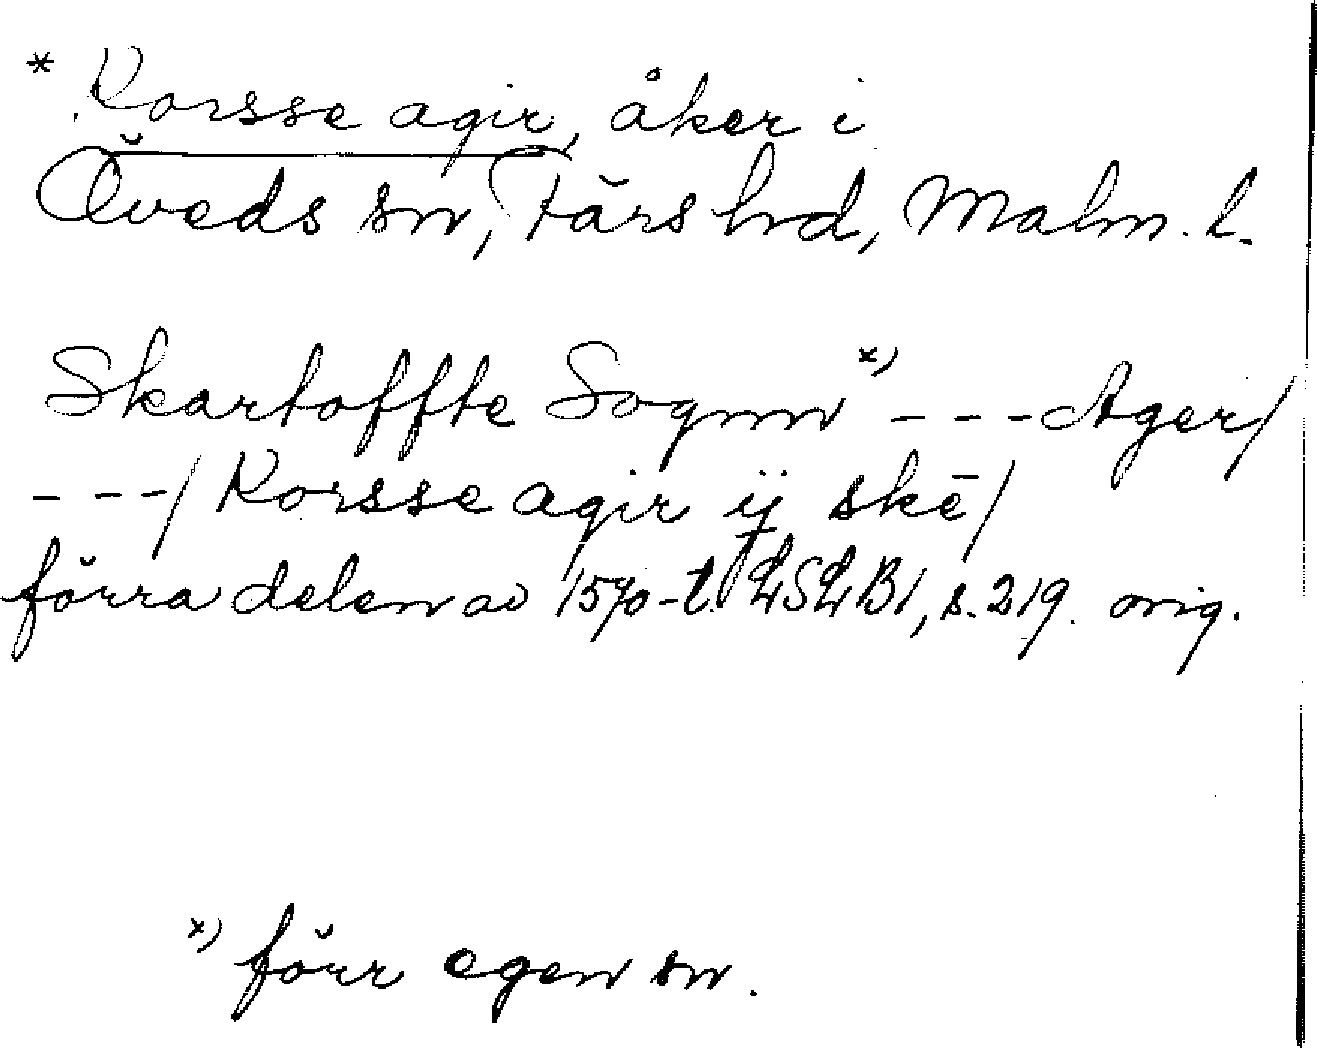 * Korsse agir, åker i
Öveds sn, Färs hd, Malm. l.
Skartoffte Sognn x) --- Ager/
---/ Korsse agir ij skē/
förra delen av 1570-t. LSLB1, s. 219. orig.
x) förr egen sn.